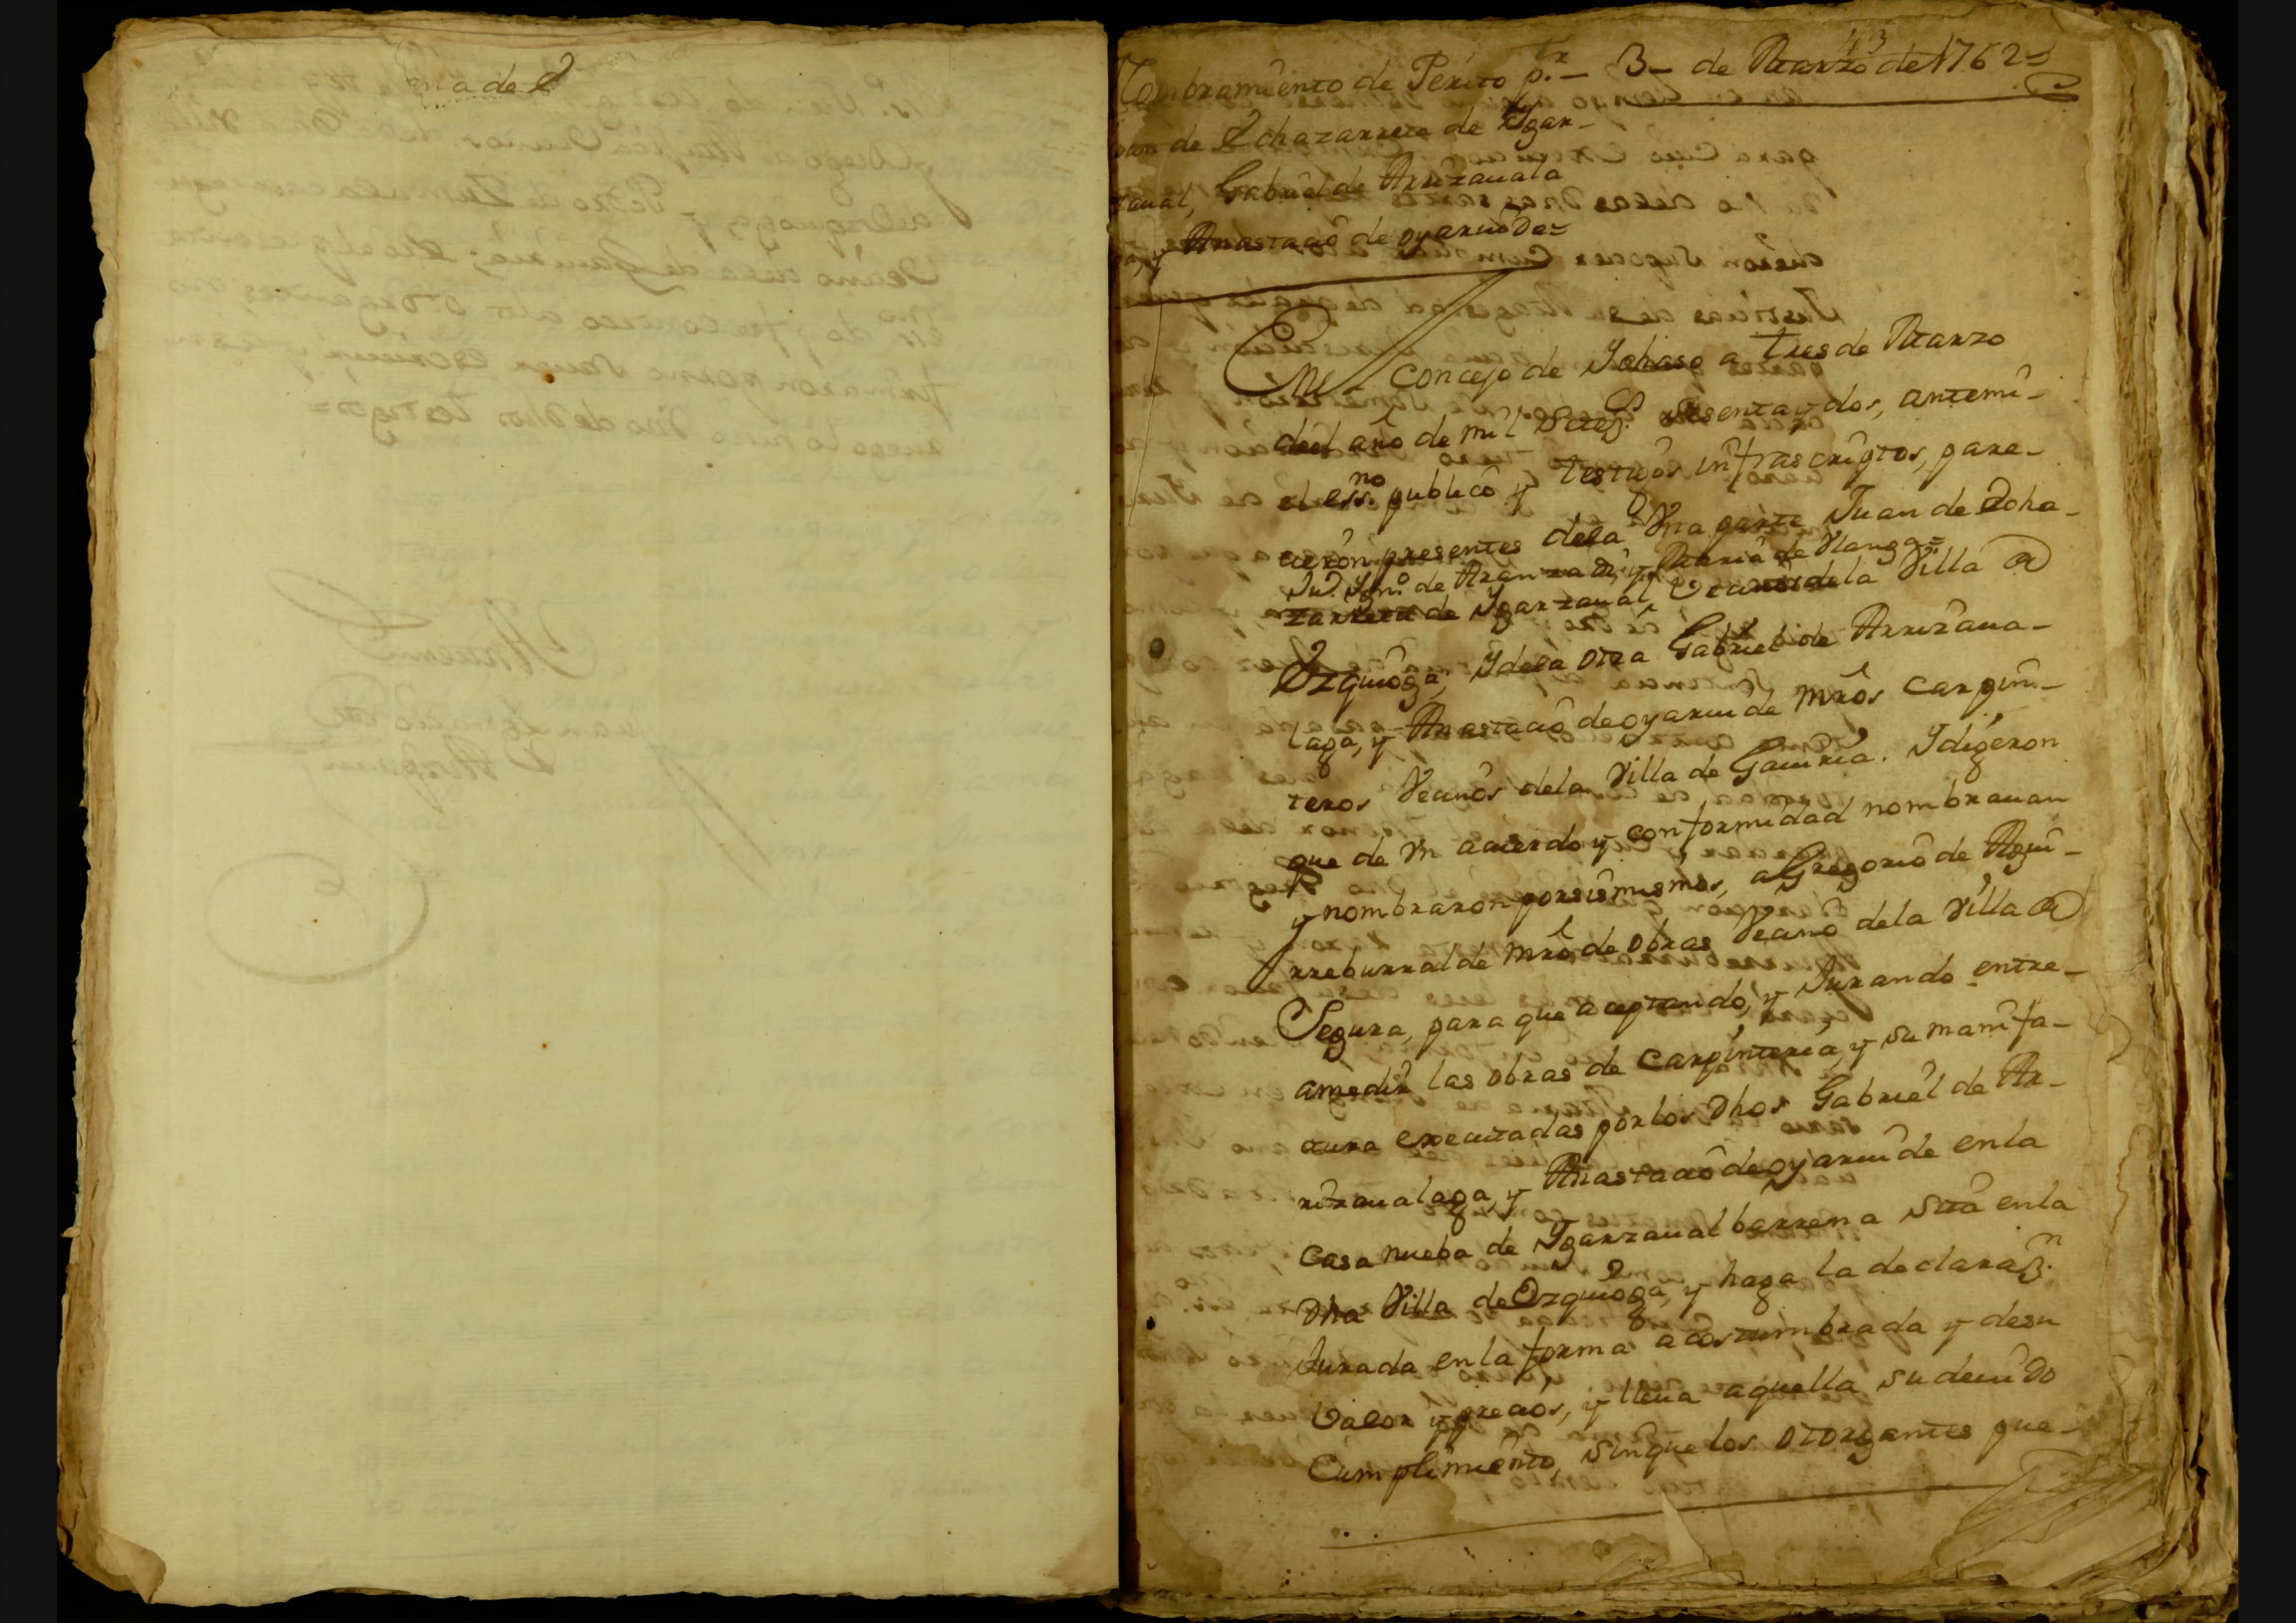 ma de
43
Nombramiento de Perito p.r 3 de Marzo de 1762
Juan de Echazarreta de Ygar-
zaual, Gabriel de Arrizauala
ga, y Anastacio de oyaruide=
En el concejo de Ychaso a tres de Marzo
del año de mil Setez.s sesenta y dos, antemi
el ess.no publico y testigos infrascriptos, pare-
cieron presentes dela Vna parte Juan de Echa-
Ju.o Ygn.o de Aranzadi, y Maria de Vlanga=
zarreta de Ygarzaual, Vecinos dela Villa de
Ezquioga, Y dela otra Gabriel de Arrizaua-
laga, y Anastacio de oyaruide mros carpin-
teros Vecinos dela Villa de Gauiria. Y digeron
que de vn acuerdo y conformidad nombrauan
y nombraron por si mismos, a Gregorio de Agui-
rreburralde mro de obras Vecino dela Villa de
Segura, para que aceptando, y Jurando entre
a medir las obras de carpinteria, y su manifa-
ctura executadas por los dhos Gabriel de Ar-
rizaualaga, y Anastacio de oyaruide en la
casa nueba de Ygarzaualbarrena sita en la
dha Villa de Ezquioga, y haga la declaraz.n
Jurada en la forma acostumbrada y de su
Valor y precios, y lleua aquella su deuido
Cumplimiento, sin que los otorgantes que-